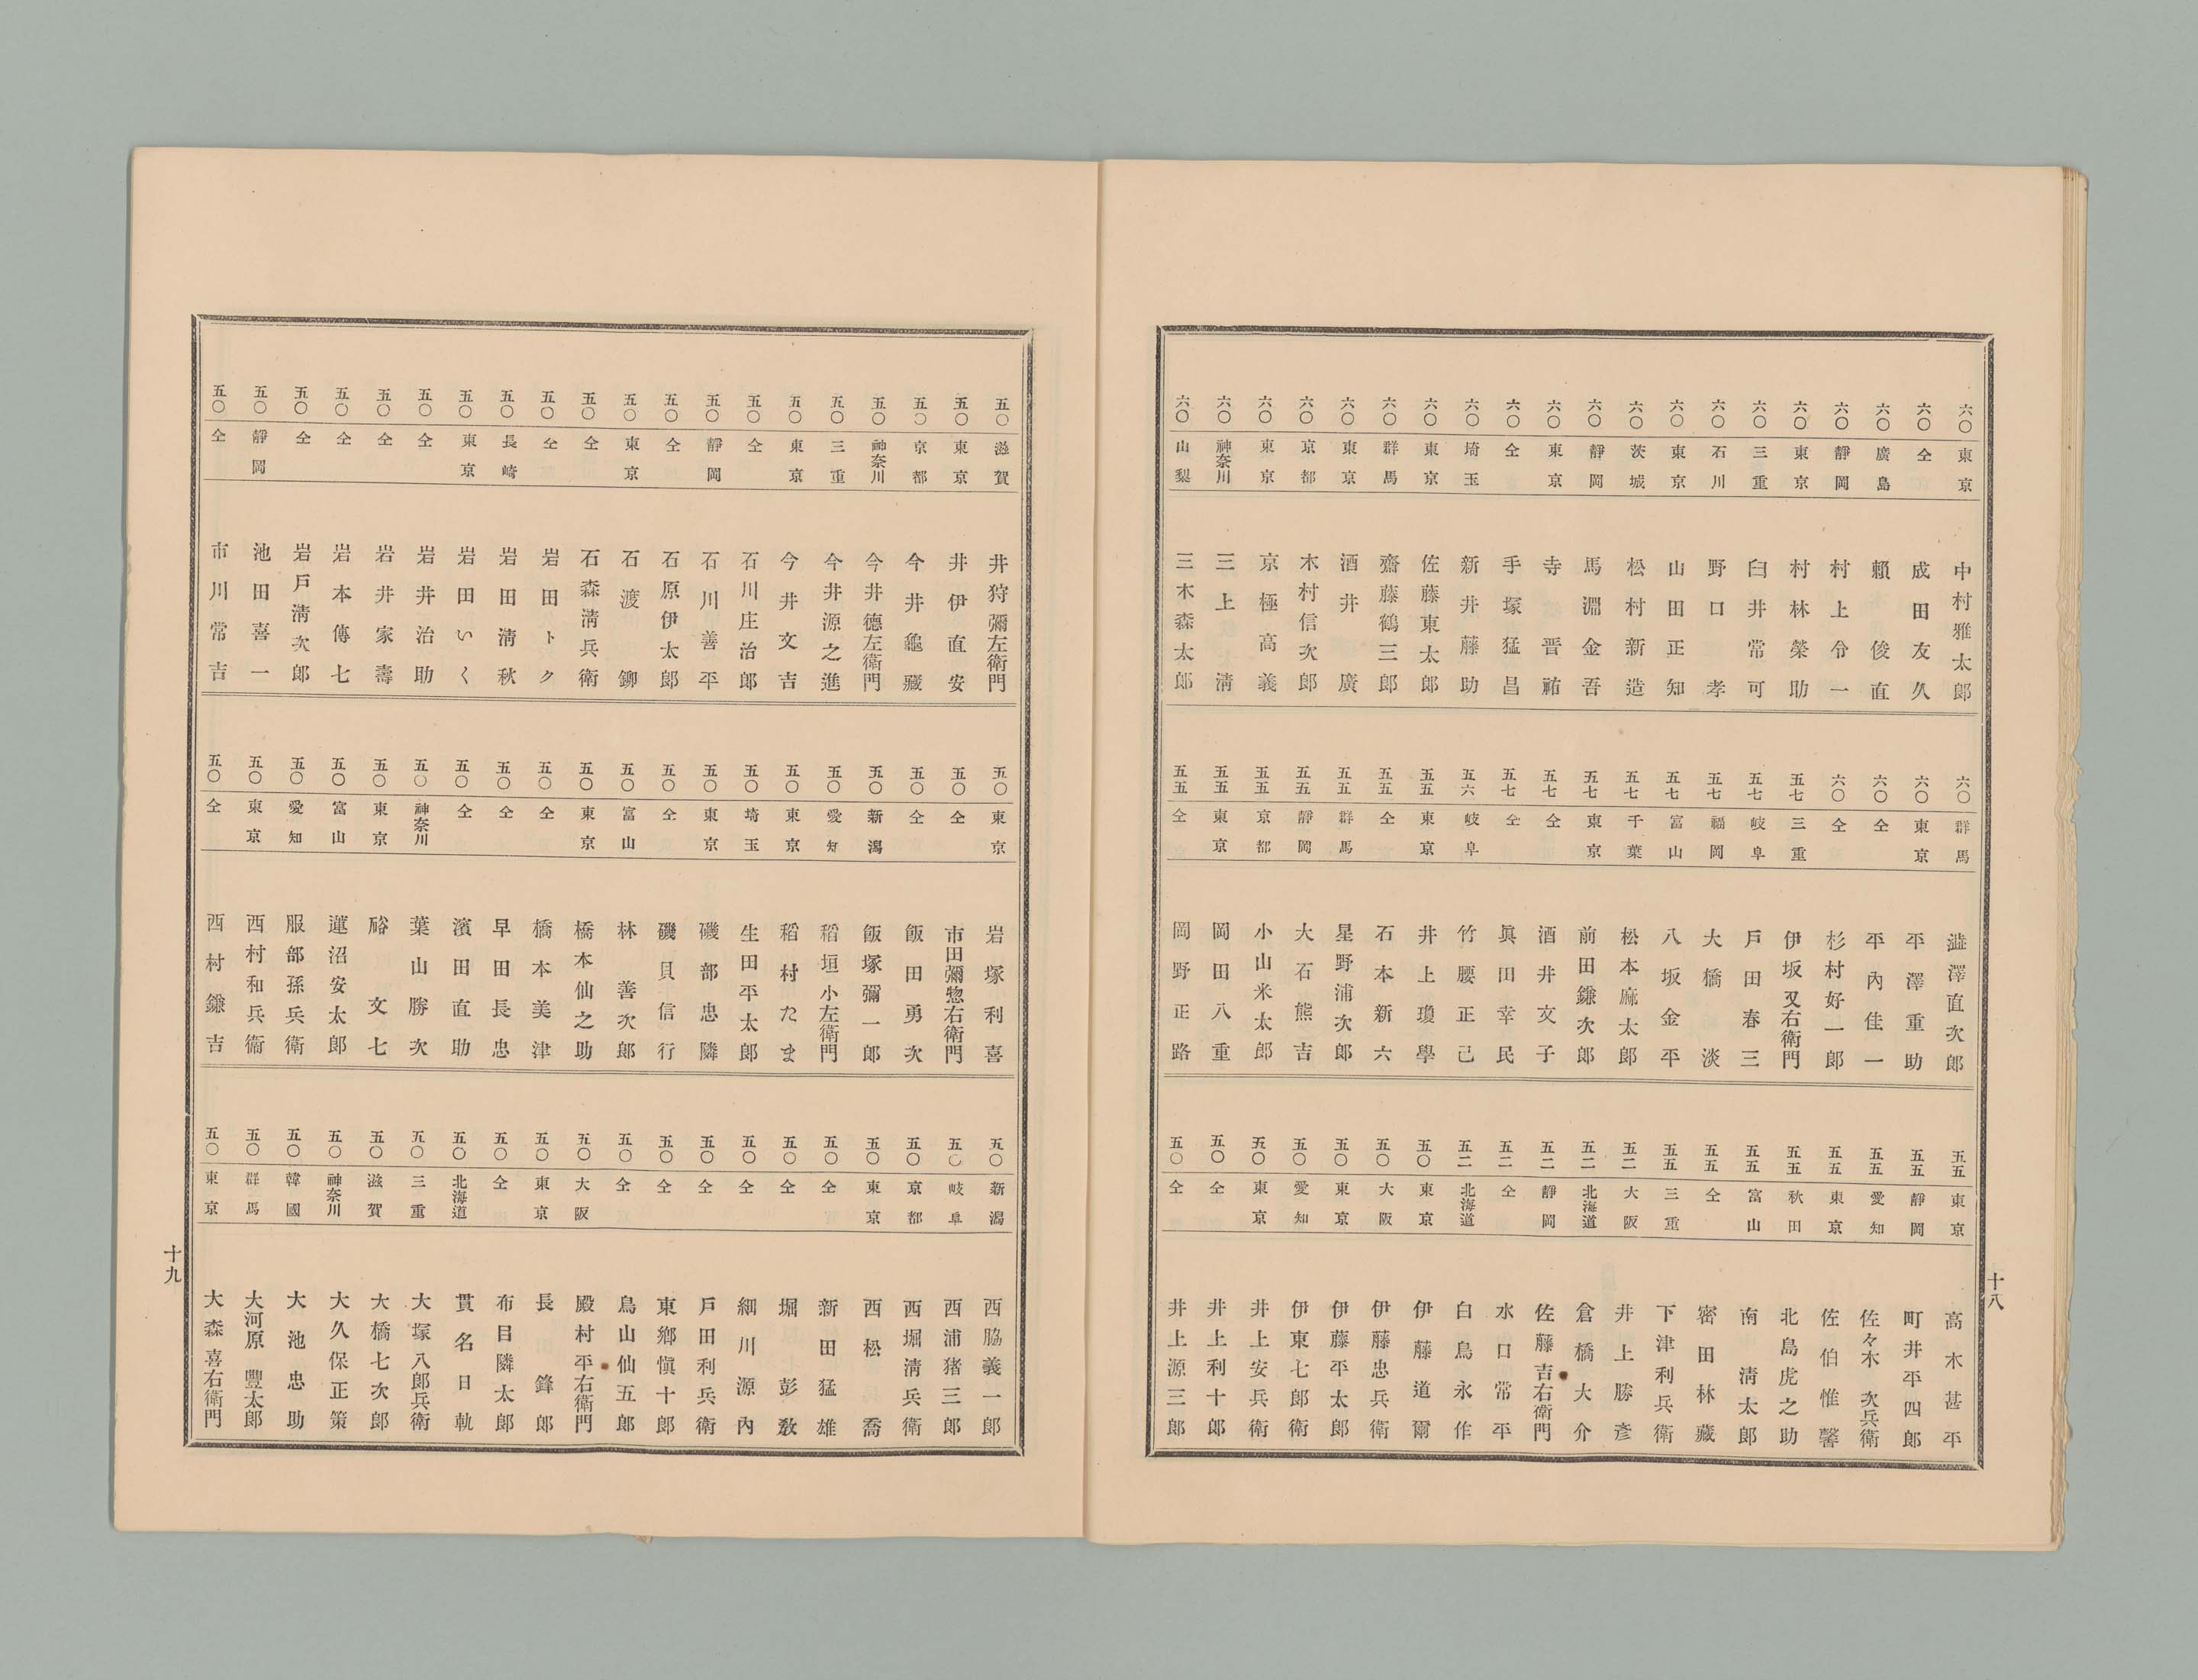 六〇 東京 中村雅太郎
六〇 仝 成田友久
六〇 廣島 賴俊直
六〇 靜岡 村上令一
六〇 東京 村林榮助
六〇 三重 臼井常可
六〇 石川 野口孝
六〇 東京 山田正知
六〇 茨城 松村新造
六〇 靜岡 馬淵金吾
六〇 東京 寺晋祐
六〇 仝 手塚猛昌
六〇 埼玉 新井藤助
六〇 東京 佐藤東太郎
六〇 群馬 齋藤鶴三郎
六〇 東京 酒井廣
六〇 京都 木村信次郎
六〇 東京 京極高義
六〇 神奈川 三上清
六〇 山梨 三木森太郎
六〇 群馬 澁澤直次郎
六〇 東京 平澤重助
六〇 仝 平內佳一
六〇 仝 杉村好一郎
五七 三重 伊坂又右衛門
五七 岐阜 戶田春三
五七 福岡 大橋淡
五七 富山 八坂金平
五七 千葉 松本麻太郎
五七 東京 前田鎌次郎
五七 仝 酒井文子
五七 仝 眞田幸民
五六 岐阜 竹腰正己
五五 東京 井上瓊學
五五 仝 石本新六
五五 群馬 星野浦次郎
五五 靜岡 大石熊吉
五五 京都 小山米太郎
五五 東京 岡田八重
五五 仝 岡野正路
五五 東京 高木甚平
五五 靜岡 町井平四郎
五五 愛知 佐々木次兵衛
五五 東京 佐伯惟馨
五五 秋田 北島虎之助
五五 富山 南淸太郎
五五 仝 密田林藏
五五 三重 下津利兵衛
五二 大阪 井上勝彥
五二 北海道 倉橋大介
五二 靜岡 佐藤吉右衛門
五二 仝 水口常平
五二 北海道 白鳥永作
五〇 東京 伊藤道爾
五〇 大阪 伊藤忠兵衛
五〇 東京 伊藤平太郎
五〇 愛知 伊東七郎衛
五〇 東京 井上安兵衛
五〇 仝 井上利十郎
五〇 仝 井上源三郎
十八
五〇 滋賀 井狩彌左衛門
五〇 東京 井伊直安
五〇 京都 今井龜藏
五〇 神奈川 今井德左衛門
五〇 三重 今井源之進
五〇 東京 今井文吉
五〇 仝 石川庄治郎
五〇 靜岡 石川善平
五〇 仝 石原伊太郎
五〇 東京 石渡鉚
五〇 仝 石森淸兵衛
五〇 仝 岩田トク
五〇 長崎 岩田淸秋
五〇 東京 岩田いく
五〇 仝 岩井治助
五〇 仝 岩井家壽
五〇 仝 岩本傳七
五〇 仝 岩戶淸次郎
五〇 靜岡 池田喜一
五〇 仝 市川常吉
五〇 東京 岩塚利喜
五〇 仝 市田彌惣右衛門
五〇 仝 飯田勇次
五〇 新潟 飯塚彌一郎
五〇 愛知 稻垣小左衛門
五〇 東京 稻村たま
五〇 埼玉 生田平太郎
五〇 東京 磯部忠隣
五〇 仝 磯貝信行
五〇 富山 林善次郎
五〇 東京 橋本仙之助
五〇 仝 橋本美津
五〇 仝 早田長忠
五〇 仝 濱田直助
五〇 神奈川 葉山勝次
五〇 東京 硲文七
五〇 富山 蓮沼安太郎
五〇 愛知 服部孫兵衛
五〇 東京 西村和兵衞
五〇 仝 西村鎌吉
五〇 新潟 西脇義一郎
五〇 岐阜 西浦猪三郎
五〇 京都 西堀淸兵衛
五〇 東京 西松喬
五〇 仝 新田猛雄
五〇 仝 堀彭敎
五〇 仝 細川源內
五〇 仝 戶田利兵衛
五〇 仝 東鄉愼十郎
五〇 仝 鳥山仙五郎
五〇 大阪 殿村平右衛門
五〇 東京 長鋒郎
五〇 仝 布目隣太郎
五〇 北海道 貫名日軌
五〇 三重 大塚八郎兵衛
五〇 滋賀 大橋七次郎
五〇 神奈川 大久保正策
五〇 韓國 大池忠助
五〇 群馬 大河原豐太郎
五〇 東京 大森喜右衛門
十九